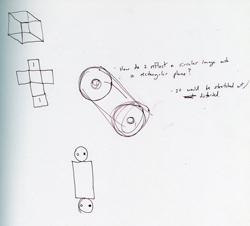 - How do I reflect a circular image onto
a rectangular plane?
- It would be stretched out/
distorted